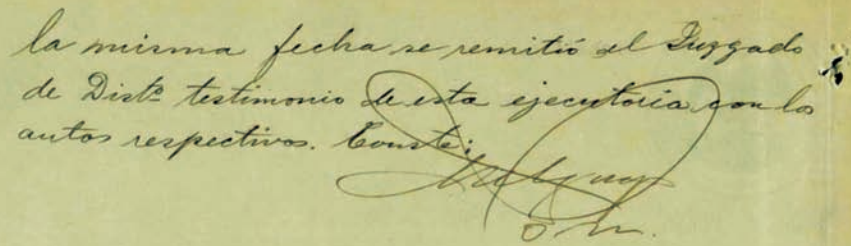 la misma fecha se remitió al Juzgado
de Disto. testimonio de esta ejecutoria con los
autos respectivos. Conste: